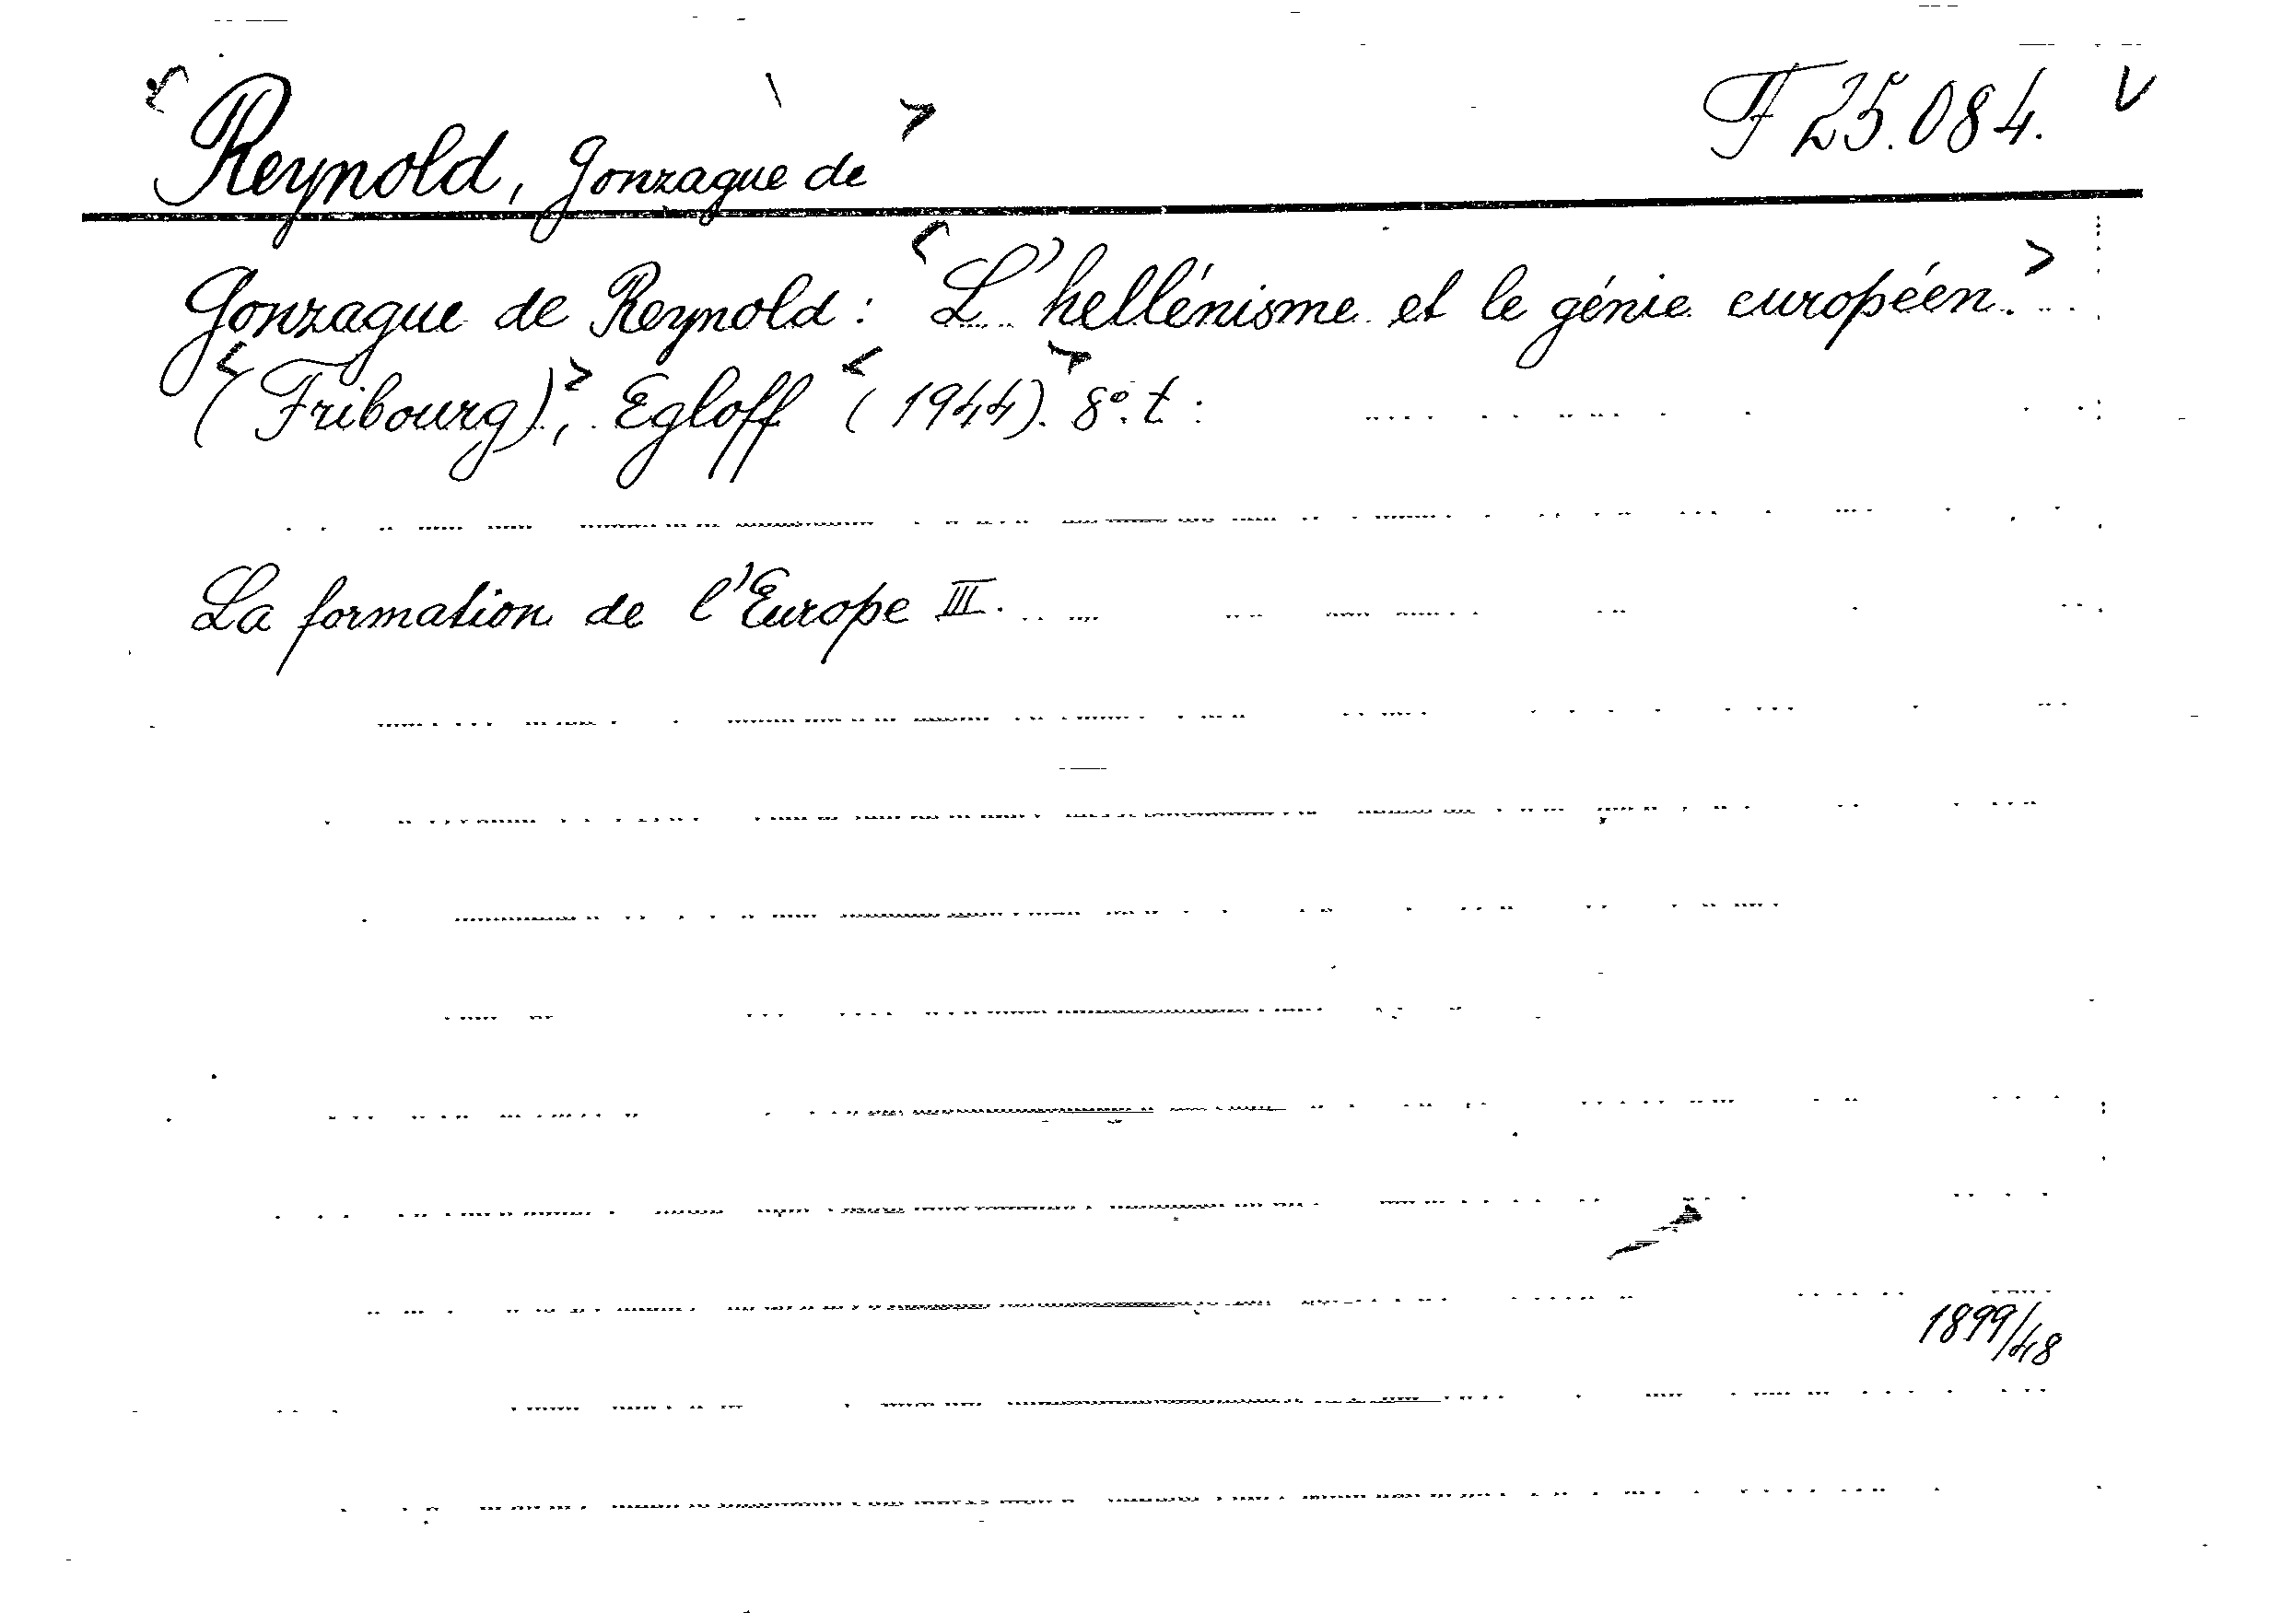 Reynold, Gonzague de
F 25.084. V
Gonzague de Reynold: <L'hellénisme et le génie européen.>
<(Fribourg)>, Egloff <(1944).> 8°. t:
La formation de l'Europe III.
1899/48